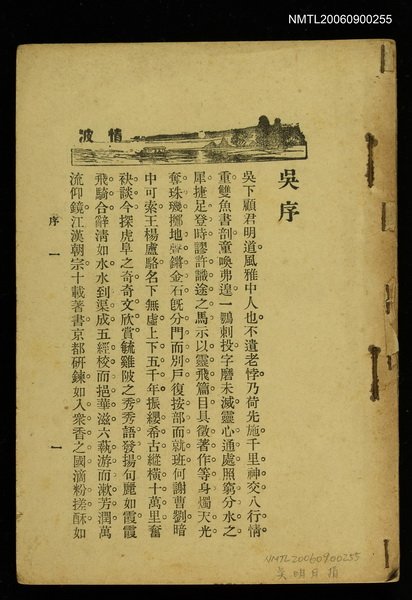 NMTL20060900255
情波
吳序
吳下顧君明道風雅中人也。不遺老悖。乃荷先施。千里神交。八行情
重。雙魚書剖。童喚弗遑。一鶚刺投。字磨未滅。靈心通處。照窮分水之
犀。捷足登時。謬許識途之馬。示以靈飛篇目。具徵著作等身。燭天光
奪珠璣。擲地聲鏘金石。旣分門而別戶。復按部而就班。何謝曹劉暗
中可索。王楊盧駱名下無虛。上下五千年。振纓希古。縱橫十萬里。奮
袂談今。探虎阜之奇。奇文欣賞。毓雞陂之秀。秀語發揚。句麗如霞。霞
飛騎合。辭淸如水。水到渠成。五經校而挹華滋。六藝游而漱芳潤。萬
流仰鏡。江漢朝宗。十載著書。京都研鍊。如入衆香之國。滴粉搓酥。如
序
一
一
NMTL20060900255